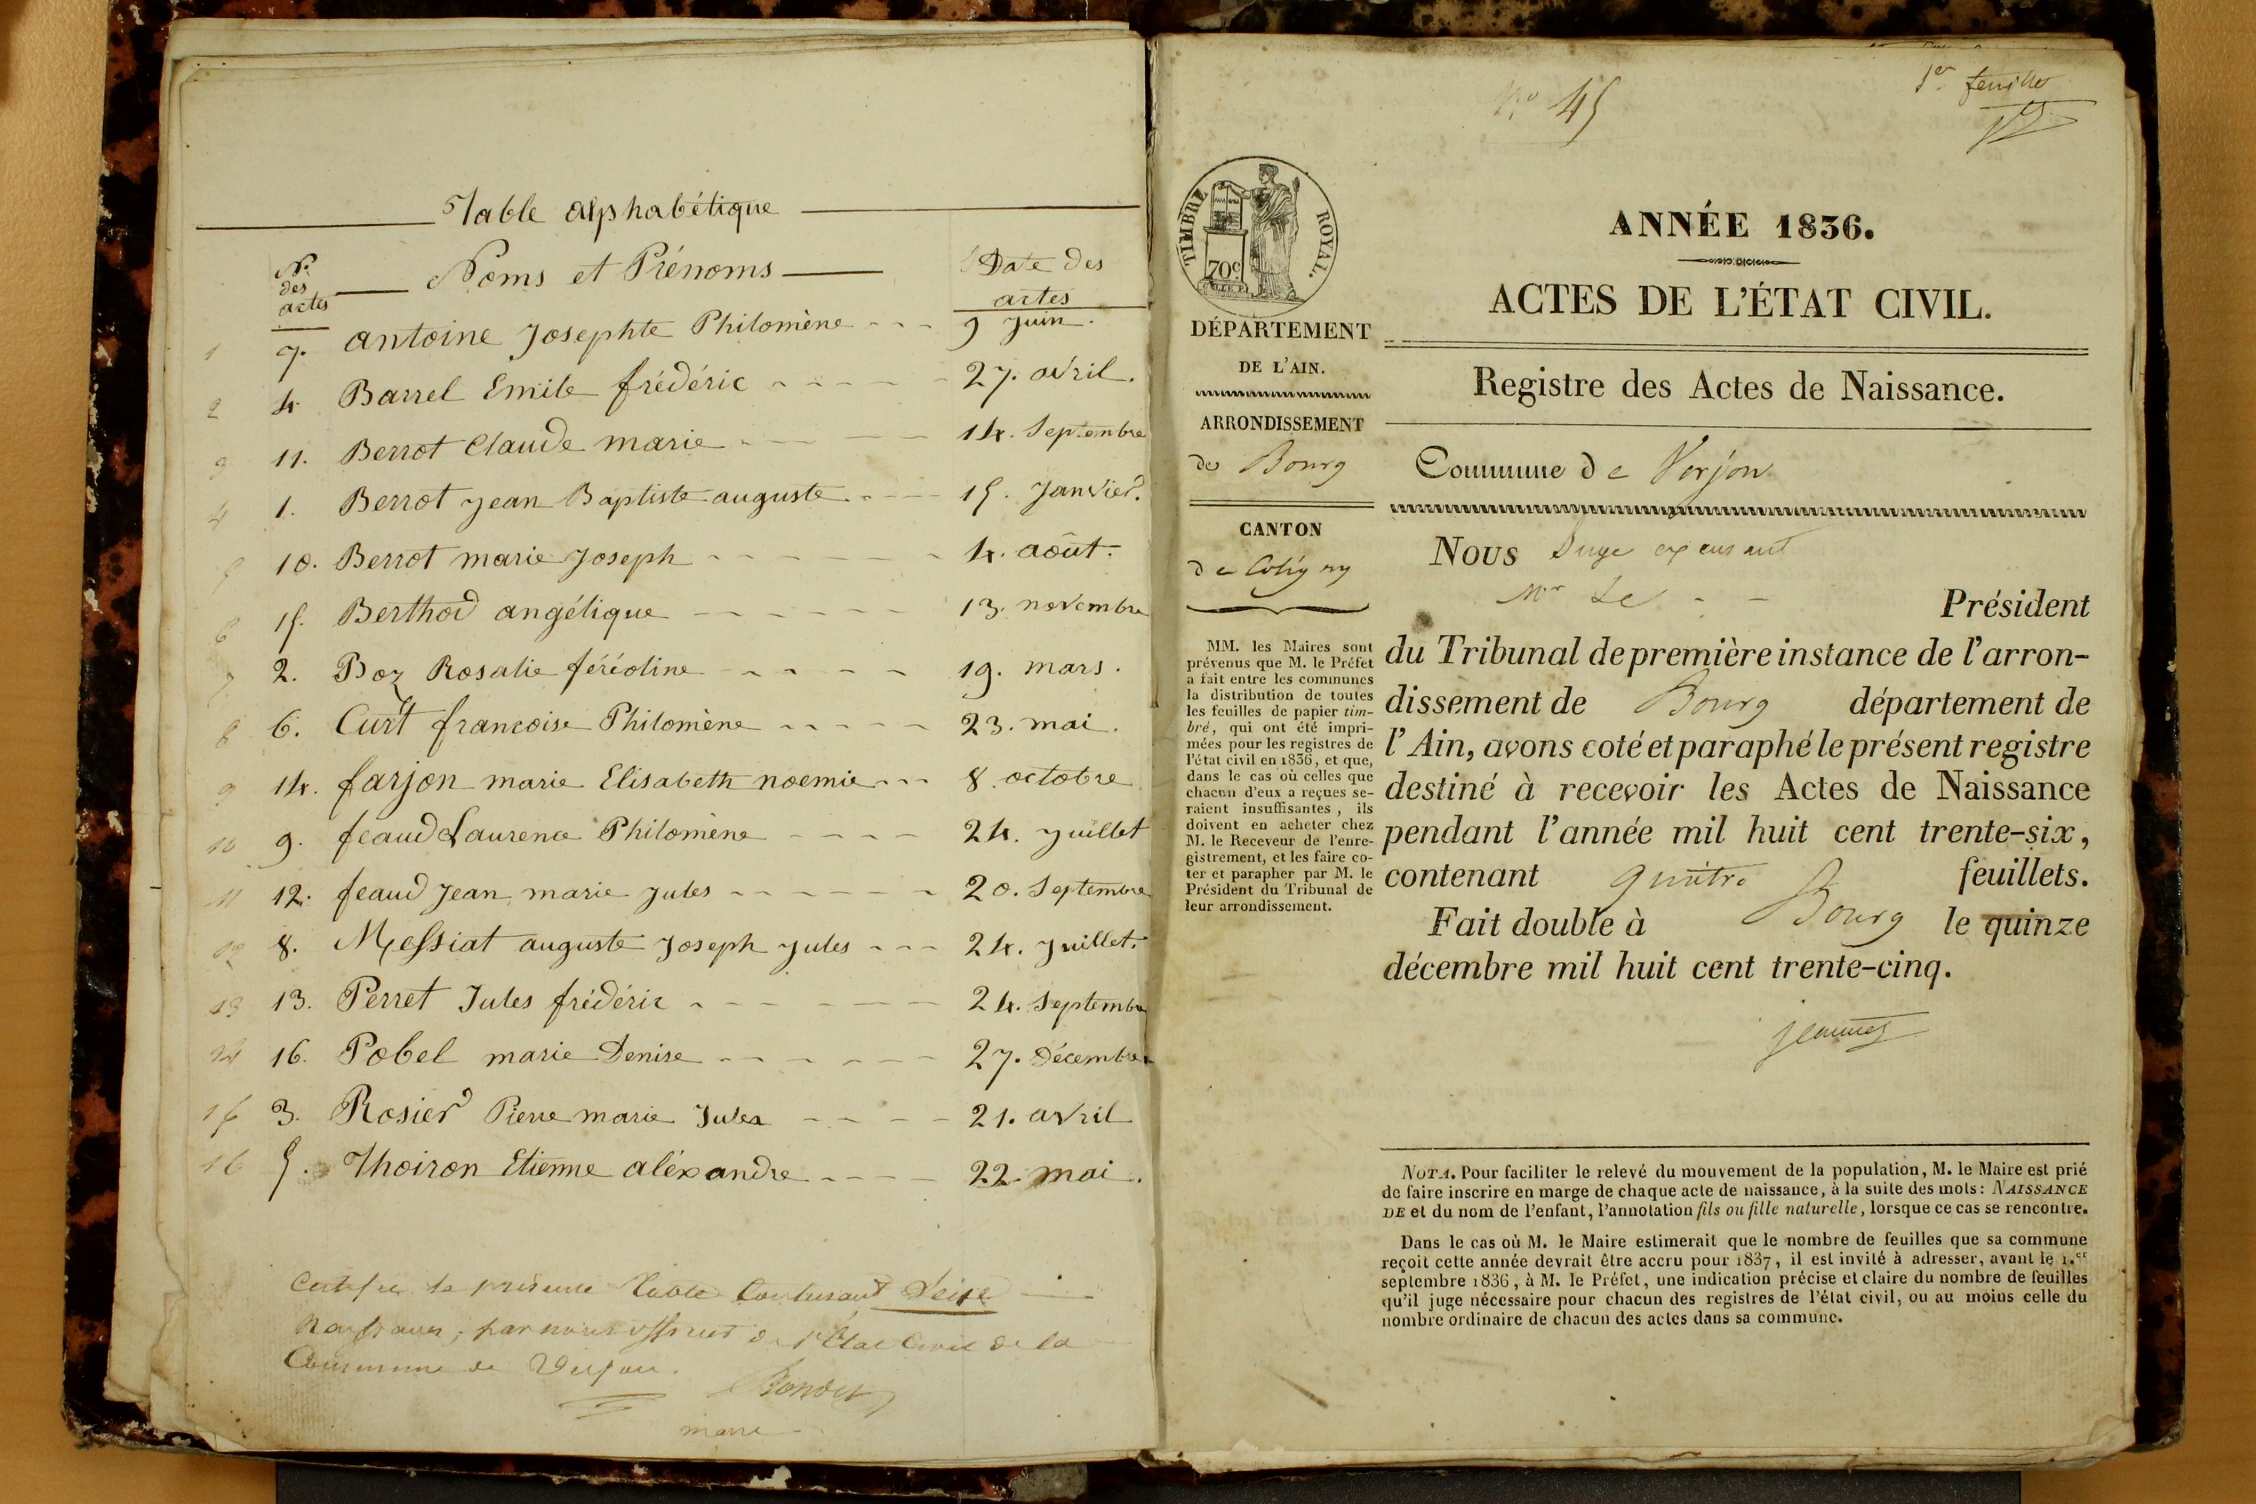 Table alphabétique
N.os des actes
Noms et Prénoms
Date des actes
1 7. antoine Josephte Philomène 9 Juin.
2 4. Barrel Emile frédéric 27. avril.
3 11. Berrot Claude marie 14. Septembre
4 1. Berrot Jean Baptiste auguste 15. Janvier.
5 10. Berrot marie Joseph 4. août.
6 15. Berthod angélique 13. novembre
7 2. Boz Rosalie féréoline 19. mars.
8 6. Curt francoise Philomène 23. mai.
9 14. farjon marie Elisabeth noemie 8. octobre
10 9. feaud Laurence Philomène 24. Juillet
11 12. feaud Jean marie Jules 20. Septembre
12 8. Messiat auguste Joseph Jules 24. Juillet.
13 13. Perret Jules frédéric 24. Septembre
14 16. Pobel marie Denise 27. Décembre
15 3. Rosier Pierre marie Jules 21. avril
16 5. Thoiron Etienne aléxandre 22. mai.
la présente Table Contenant Seize
par nous officier de l'État Civil de la
Commune de Verjon.
maire
N.o 45
1er feuillet
TIMBRE ROYAL.
70c
DÉPARTEMENT
DE L'AIN.
ARRONDISSEMENT
de Bourg
CANTON
de Coligny
MM. les Maires sont
prévenus que M. le Préfet
a fait entre les communes
la distribution de toutes
les feuilles de papier tim-
bré, qui ont été impri-
mées pour les registres de
l'état civil en 1836, et que,
dans le cas où celles que
chacun d'eux a reçues se-
raient insuffisantes, ils
doivent en acheter chez
M. le Receveur de l'enre-
gistrement, et les faire co-
ter et parapher par M. le
Président du Tribunal de
leur arrondissement.
ANNÉE 1836.
ACTES DE L'ÉTAT CIVIL.
Registre des Actes de Naissance.
Commune de Verjon
Nous Juge
Mr Le Président
du Tribunal de première instance de l'arron-
dissement de Bourg département de
l'Ain, avons coté et paraphé le présent registre
destiné à recevoir les Actes de Naissance
pendant l'année mil huit cent trente-six,
contenant quatre feuillets.
Fait double à Bourg le quinze
décembre mil huit cent trente-cinq.
NOTA. Pour faciliter le relevé du mouvement de la population, M. le Maire est prié
de faire inscrire en marge de chaque acte de naissance, à la suite des mots: NAISSANCE
DE et du nom de l'enfant, l'annotation fils ou fille naturelle, lorsque ce cas se rencontre.
Dans le cas où M. le Maire estimerait que le nombre de feuilles que sa commune
reçoit cette année devrait être accru pour 1837, il est invité à adresser, avant le 1.er
septembre 1836, à M. le Préfet, une indication précise et claire du nombre de feuilles
qu'il juge nécessaire pour chacun des registres de l'état civil, ou au moins celle du
nombre ordinaire de chacun des actes dans sa commune.